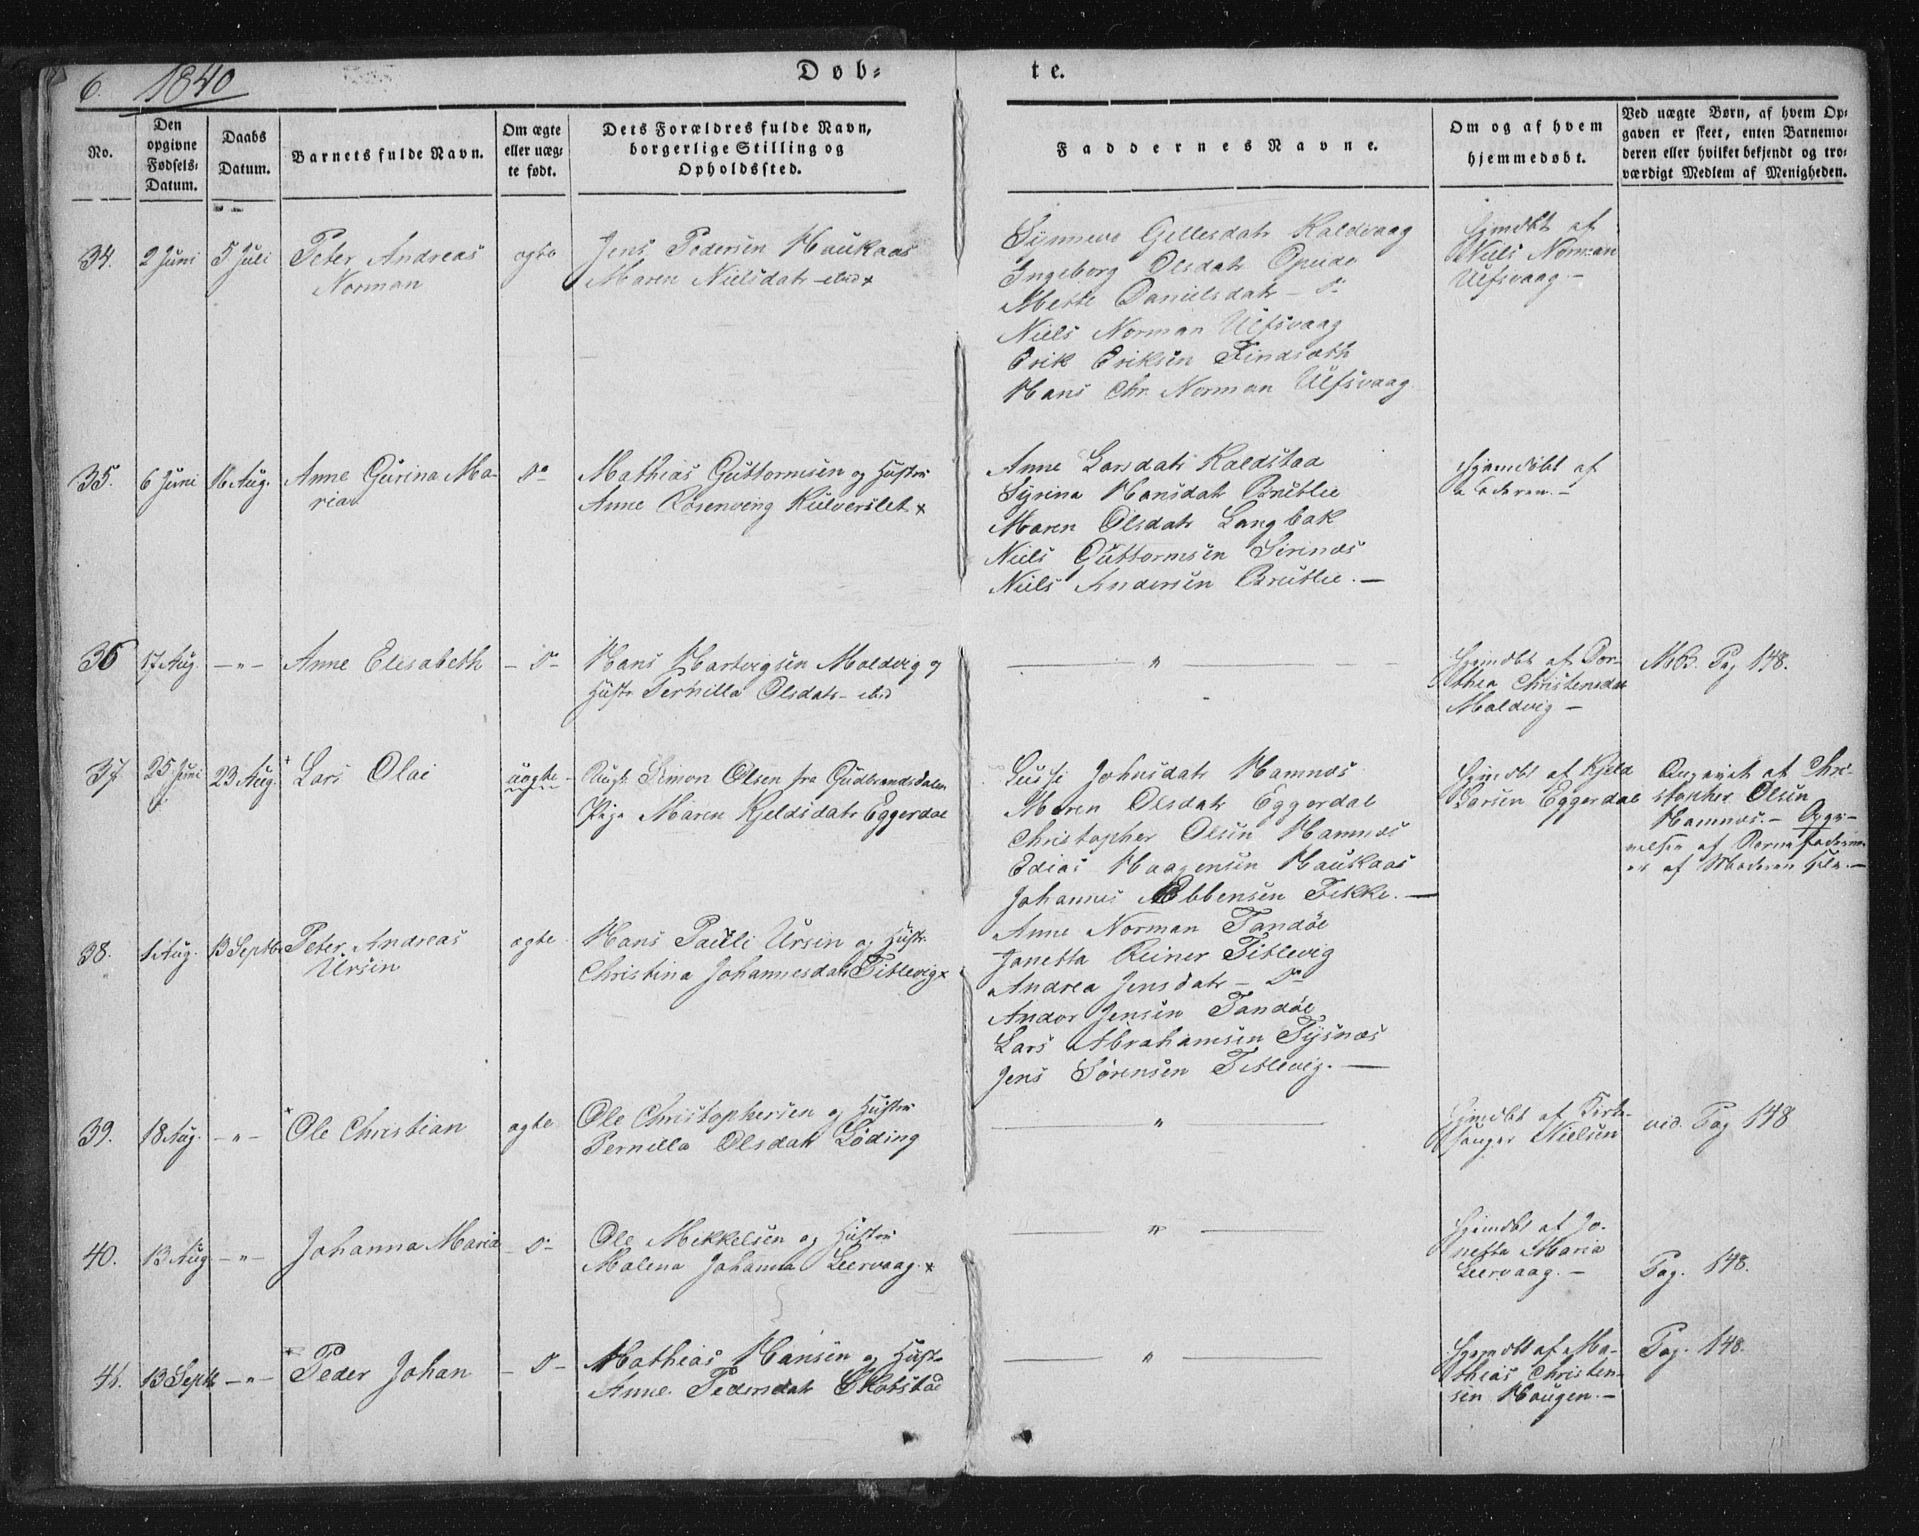 6. 1840 Døb- te.
No.
Den opgivne Fødsels-Datum.
Daabs Datum.
Barnets fulde Navn.
Om ægte eller uægte født.
Dets Forældres fulde Navn, borgerlige Stilling og Opholdssted.
Faddernes Navne.
Om og af hvem hjemmedøbt.
Ved uægte Børn, af hvem Opgaven er skeet, enten Barnemoderen eller hvilket bekjendt og troværdigt Medlem af Menigheden.
34. 2 Juni 5 Juli Peter Andreas Norman ægte
Jens Pedersen Haukaas
Maren Nielsdatr ibid x
Synneve Gellesdatr Kaldvaag
Ingeborg Olsdatr Opeide
Mette Danielsdatr - do
Niels Norman Ulfsvaag
Erik Eriksen Findsæth
Hans Chr. Norman Ulfsvaag
Hjemdbt af
Niels Norman
Ulfsvaag. -
35. 6 Juni 16 Aug. Anne Gurina Maria do
Mathias Guttormsen og Hustru
Anne Rosenving Kulverslet x
Anne Larsdatr Kaldstad
Syrina Hansdatr Brutlie
Maren Olsdatr Langbak
Niels Guttormsen Sirinæs
Niels Andersen Brutlie. -
Hjemdøbt af
Faderen. -
36 17 Aug. - " - Anne Elisabeth - do -
Hans Hartvigsen Maldvig og
Hustr Pernilla Olsdatr - ibid
"
Hjemdbt af Dor-
thea Christensdat
Maldvig -
Pag 148.
37 25 Juni 23 Aug. Lars Olai uægte
Ungk. Simon Olsen fra Gudbrandsdalen
Pige Maren Kjeldsdatr Eggerdal
Johnsdatr Hamnæs
Maren Olsdatr Eggerdal
Christopher Olsen Hamnæs
Edias Haagensen Haukaas
Johannes Ebbensen Fikke. -
Hjemdbt af Kjeld
Larsen Eggerdal
Angivet af Chri-
stopher Olsen
Hamnæs. - Opgi-
velsen af Barnefaderen
er af Moderen
38. 1 Aug. 13 Septbr Peter Andreas Ursin ægte
Hans Pauli Ursin og Hustr.
Christina Johannesdatr Fitlevig x
Anne Norman Tandøe
Janetta Reiner Fitlevig
Andrea Jensdatr - do
Andor Jensen Tandøe
Lars Abrahamsen Tysnæs
Jens Sørensen Fitlevig. -
39. 18 Aug. - " - Ole Christian ægte
Ole Christophersen og Hustru
Pernilla Olsdatr Løding
"
Hjemdbt af Kirke-
sanger Nielsen
vid. Pag 148
40. 13 Aug - " - Johanna Maria - do -
Ole Mikkelsen og Hustru
Malena Johanna Leervaag. x
"
Hjemdbt af Jo-
netta Maria
Leervaag. -
Pag. 148.
41. 13 Septb - " - Peder Johan - do -
Mathias Hansen og Hustr.
Anne Pedersdatr Skotstad
"
Hjemdbt af Ma-
thias Christen-
sen Haugen. -
Pag. 148.